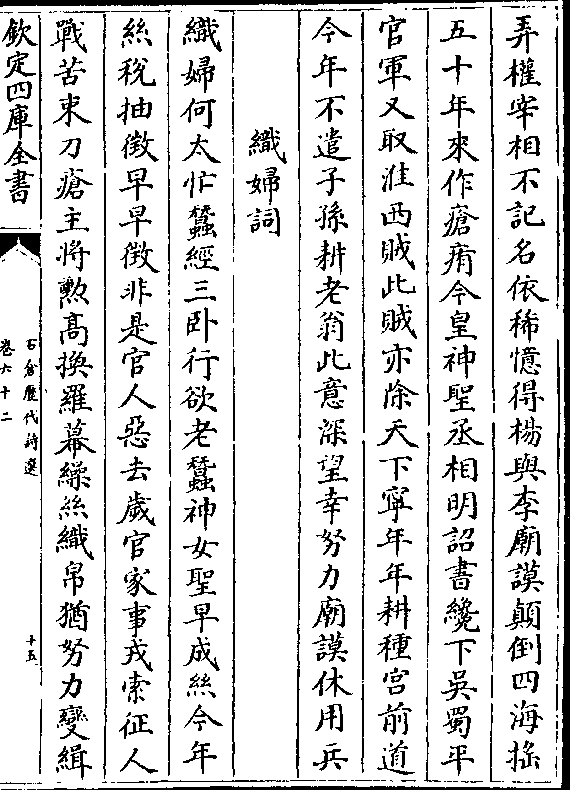 弄權宰相不記名依稀憶得楊與李廟謨顛倒四海揺
五十年來作瘡痏今皇神聖丞相明詔書纔下吳蜀平
官軍又取淮西賊此賊亦除天下寧年年耕種宫前道
今年不遣子孫耕老翁此意深望幸努力廟謨休用兵
織婦詞
織婦何太忙蠶經三卧行欲老蠶神女聖早成絲今年
絲稅抽徵早早徵非是官人惡去歲官家事戎索征人
戰苦束刀瘡主將勲髙換羅幕繰絲織帛猶努力變緝
欽定四庫全書
石倉歷代詩選
卷六十二
十五